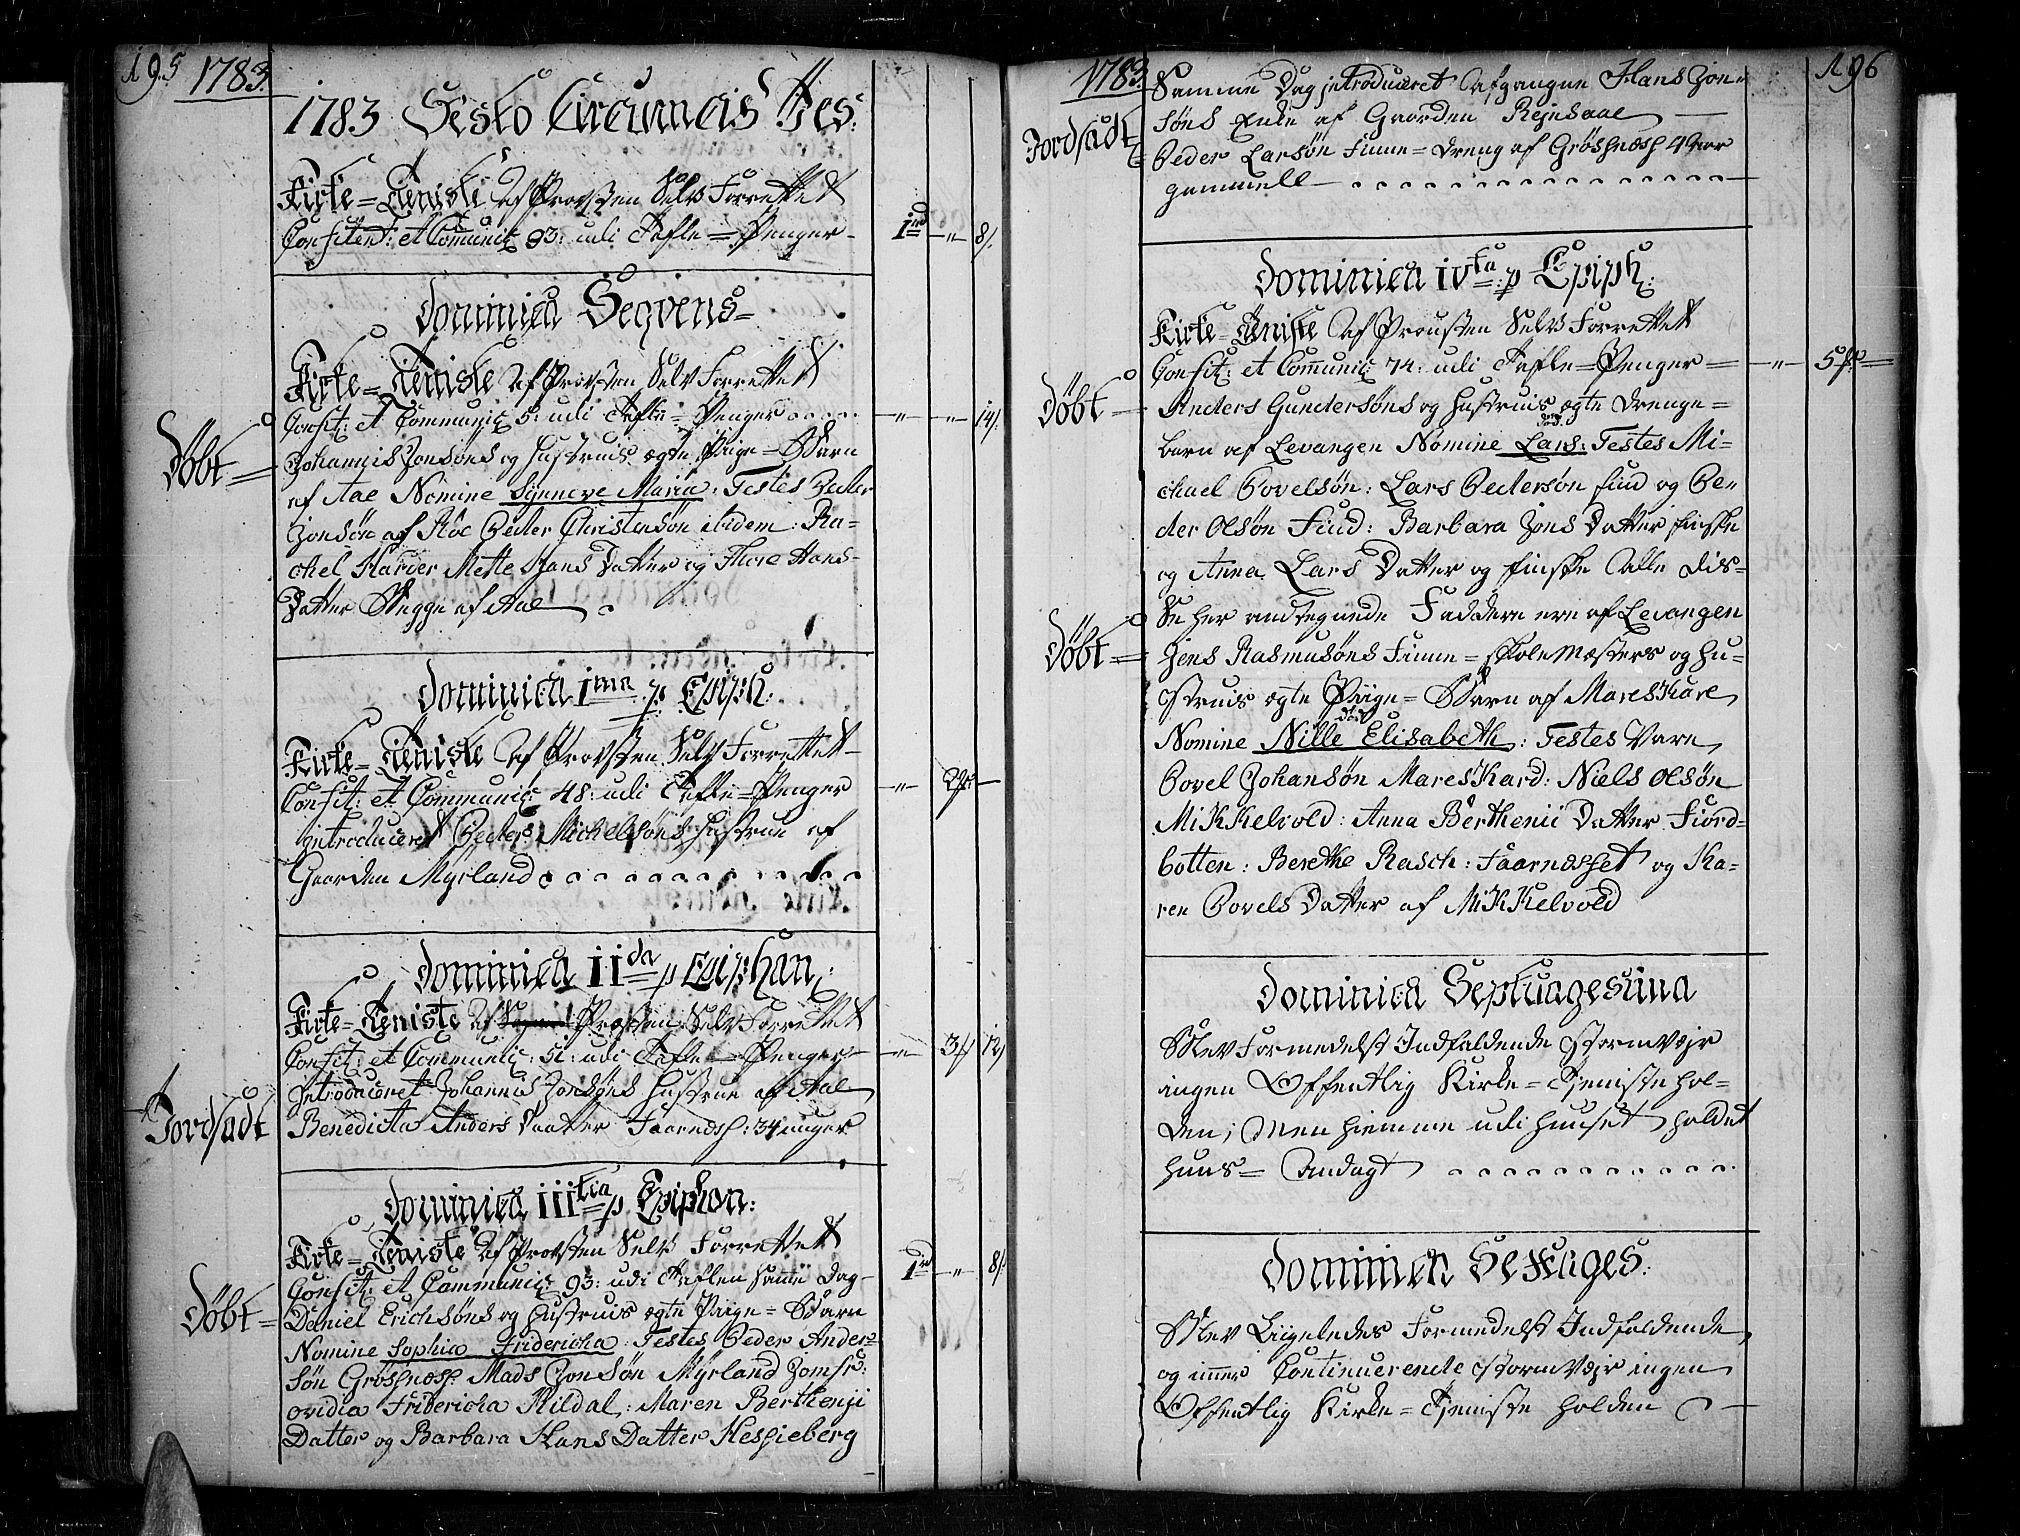 195 1783.
1783 Festo Circumcis Jes:
Kirke=Tieniste af Provsten Selv Forrettet
Confitent: et Comunic: 93: udi Tafle=Penger 1rd – " – 8/.
Dominica Seqvens=
Kirke=Tieniste af Provsten Selv Forrettet
Confit: et Communic: 5: udi Tafle=Penger – " – " – 14/.
Døbt= Johannis Jonsøns og Hustruis ægte Piige=Barn
af Aae Nomine Synneve Maria: Testes Peder
Jonsøn af Röe Peder Christensøn ibidem: Ra-
chel Harder Mette Hans Datter og Thore Hans-
Datter Begge af Aae
Dominica Ima p Epiph:
Kirke=Tieniste af Provsten Selv Forrettet
Confit: et Communic: 48: udi Tafle=Penger – " –
introduceret Peder Michelsøns Hustrue af
Gaarden Myrland
Dominica IIda p Epiphan:
Kirke=Tieniste af Provsten Selv Forrettet
Confit: et Communic: 51: udi Tafle=Penger – " – 3/ 12/
introduceret Johannis Jonsøns Hustrue af Aae
Jordfadt Benedicta Anders Daatter Faarnæss: 34 uuger
Dominica IIItia p Epiphan:
Kirke=Tieniste af Provsten Selv Forrettet
Confit: et Communic: 93: udi Taflen Samme Dag 1rd – " – 8/.
Døbt= Daniel Erichsøns og Hustruis ægte Piige=Barn
Nomine Sophia Fridericha: Testes Peder Ander=
søn Grøssnæss: Mads Jonsøn Myrland Jomfr:
ovidia Fridericha Hildal: Maren Berthenji
Datter og Barbara Hans Datter Hessieberg
1783. 196
Samme Dag introduceret afgangne Hans Jon=
søns Enke af Gaarden Rejnsaae
Jordfadt Peder Larsøn Finne=Dreng af Grøssnæss 4 Aar
gammell
Dominica IVta p Epiph:
Kirke=Tieniste af Provsten Selv Forrettet
Confit: et Communic: 74: udi Tafle=Penger = – " – 5 =
Døbt Anders Gundersøns og Hustruis ægte Drenge=
død
barn af Levangen Nomine Lars: Testes Mi-
chael Povelsøn: Lars Pedersøn Find og Pe-
der Olsøn Find: Barbara Jons Datter finske
og Anna Lars Datter og finske alle Dis-
se her andtegnede Faddere ere af Levangen
Døbt= Jens Rasmusøns Finne=SkoleMæsters og Hu-
struis ægte Piige=Barn af Mareskare
død
Nomine Nille Elisabeth: Testes Vare
Povel Johansøn Mareskard: Niels Olsøn
Mikkelvold: Anna Berthenii Datter Fiord-
botten: Berethe Rasch: Faarnæsset og Ka-
ren Povels Datter af Mikkelvold
Dominica Septuagesima
Blev Formedelst Indfaldende Stormvejr
ingen Offentlig Kirke=Tjeniste hol-
den; Men hiemme udi Huuset holdet
Huus=Andagt
Dominica Sexages:
Blev Liigeledes Formedelst Indfaldende
og immer Continuerende Stormvejr ingen
Offentlig Kirke=Tjeniste holden